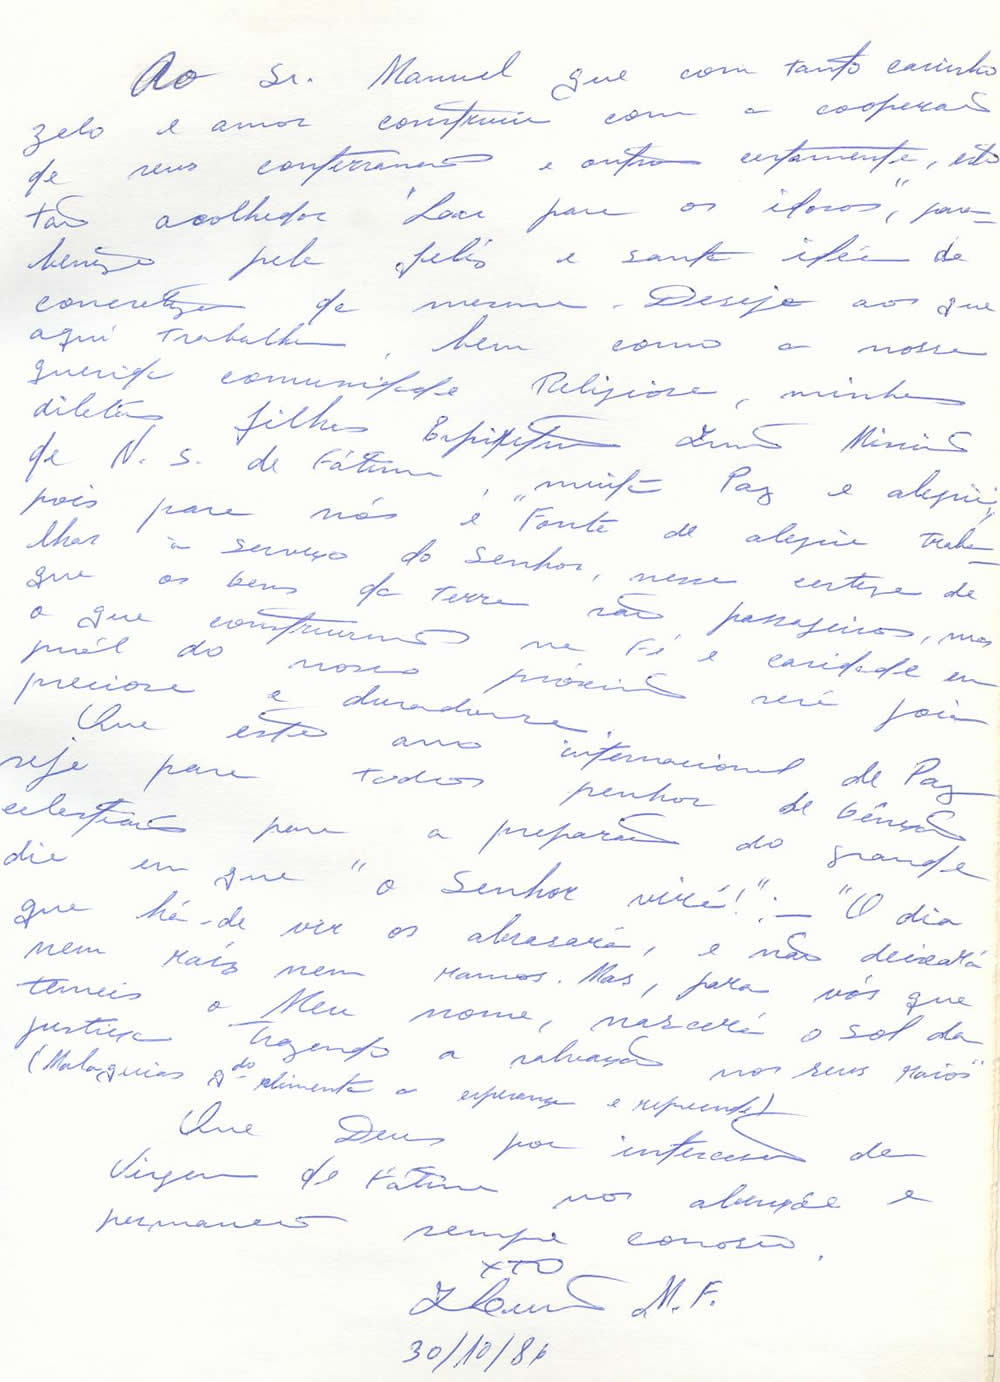 Ao Sr. Manuel que com tanto carinho
zelo e amor construiu com a cooperação
de seus conterraneos e outros certamente, este
tão acolhedor "Lar para os idosos", para-
benizo pela feliz e santa idéia de
concretiza da mesma. Desejo aos que
aqui trabalham, bem como a nossa
querida comunidade Religiosa, minhas
diletas filhas Espirituais Irmãs
de N. S. de Fátima, "muita Paz e alegria",
pois para nós é Fonte de alegria traba-
lhar à serviço do Senhor, nessa certeza de
que os bens da terra são passageiros, mas
o que construirmos na Fé e caridade em
pról do nosso próximo será joia
preciosa e duradoura.
Que este ano internacional da Paz
seja para todos penhor de bênçãos
celestiais para a preparação do grande
dia em que "o Senhor virá!": – "O dia
que há-de vir os abrasará, e não deixará
nem raís nem ramos. Mas, para vós que
temeis o Meu nome, nascerá o sol da
justiça trazendo a salvação nos seus raios"
(Malaquias qdo alimenta a esperança e repreende)
Que Deus por intercessão da
Virgem de Fátima nos abençõe e
permaneça sempre conosco.
XTO
M.F.
30/10/86